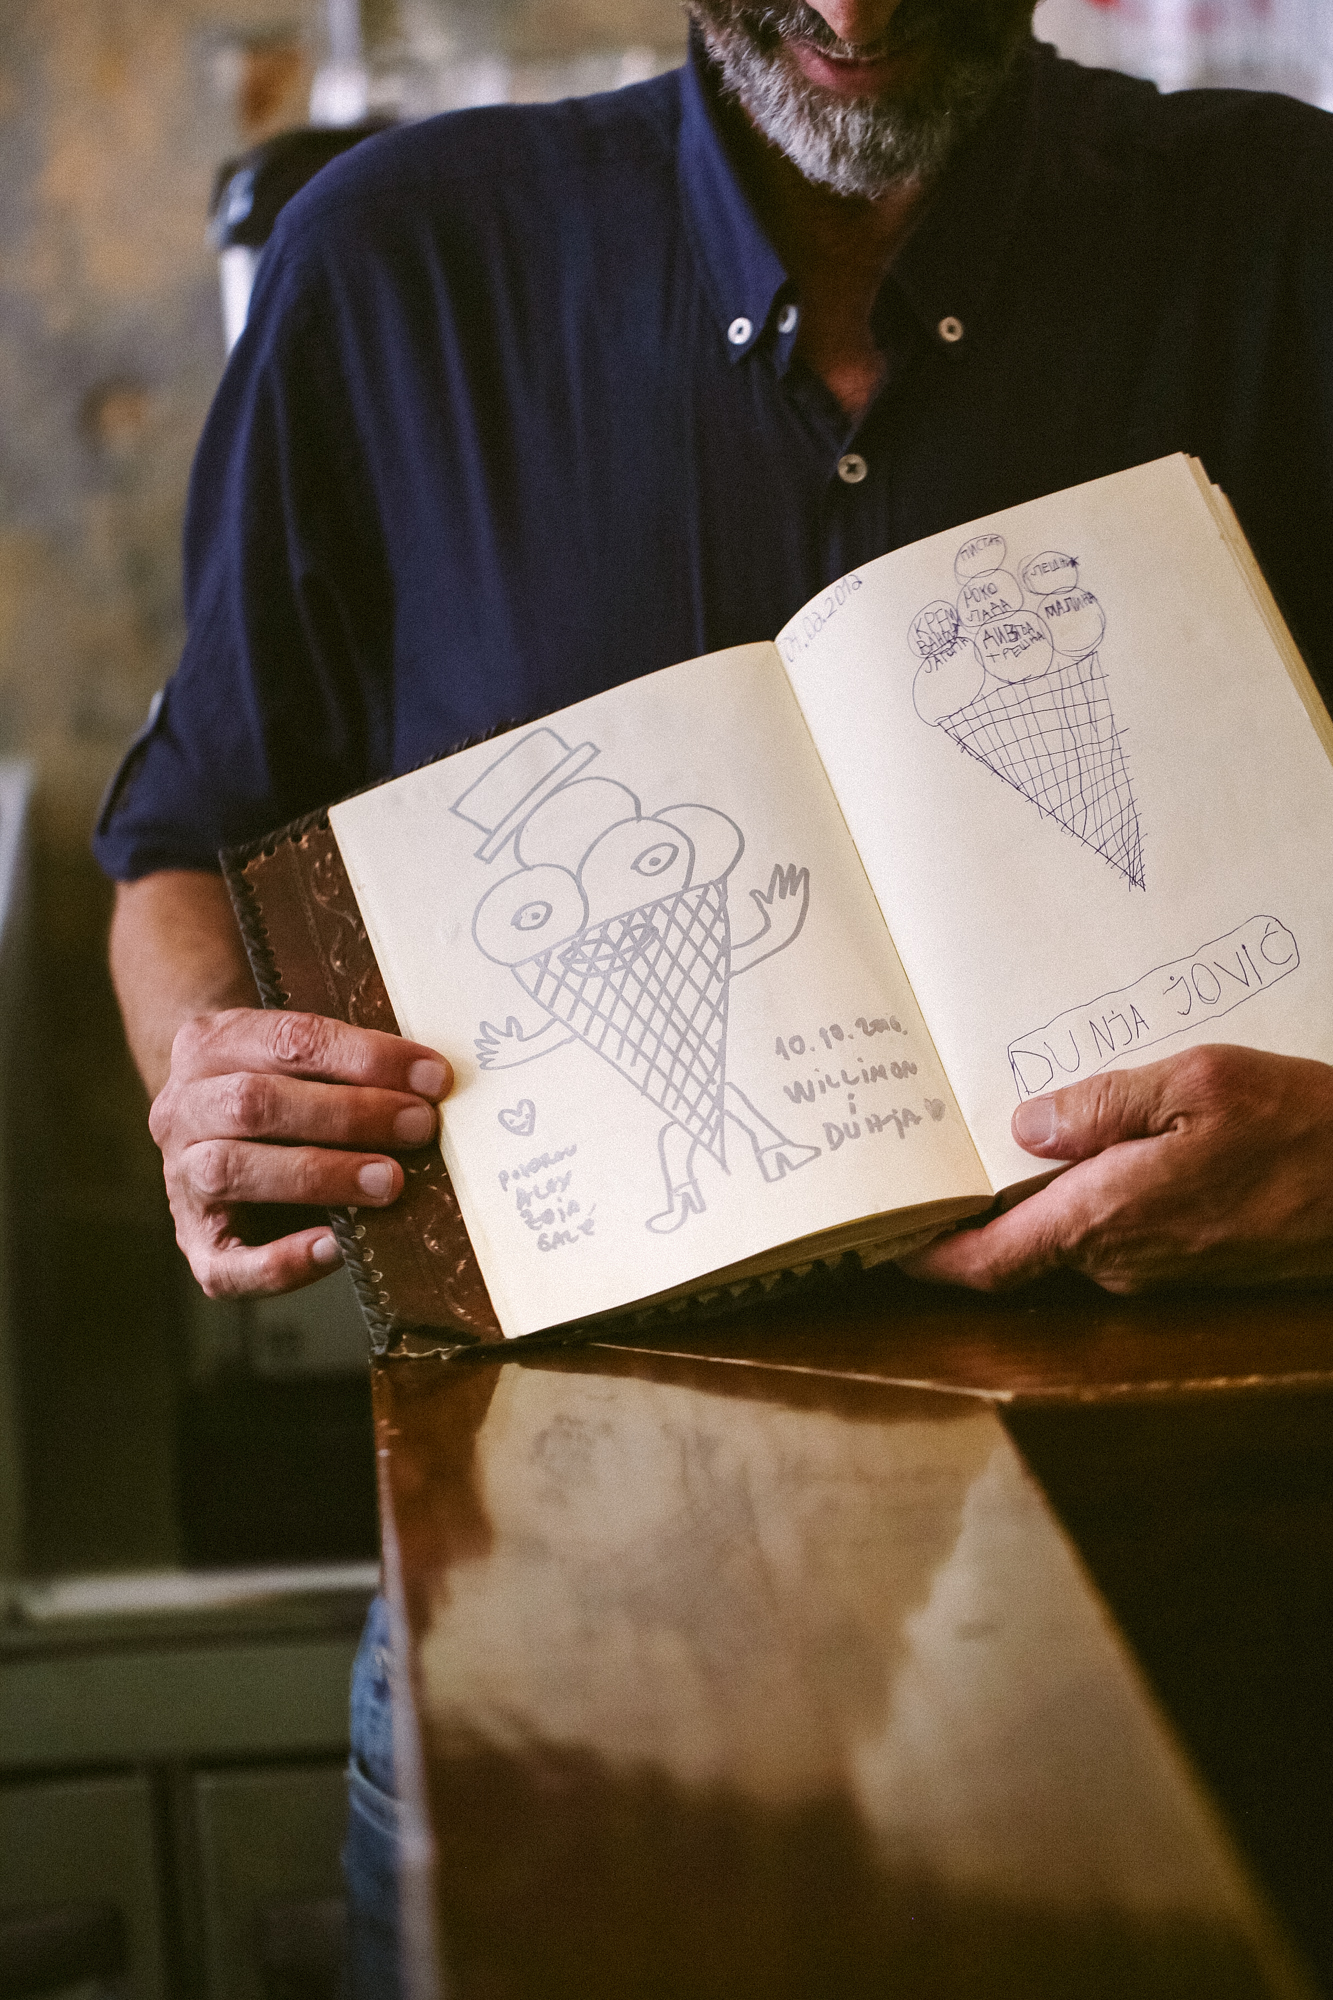 10.10.2016.
WILLIMON
i
DUNJA
ALEX
ZOJA
GALE
01.02.2012
ПИСТАЋ
ЛЕШНИК
РОКО
ЛАДА
МАЛИНА
КРЕМ
ВАНИЛА
ЈАГОДА
ДИВЉА
ТРЕШЊА
DUNJA JOVIĆ